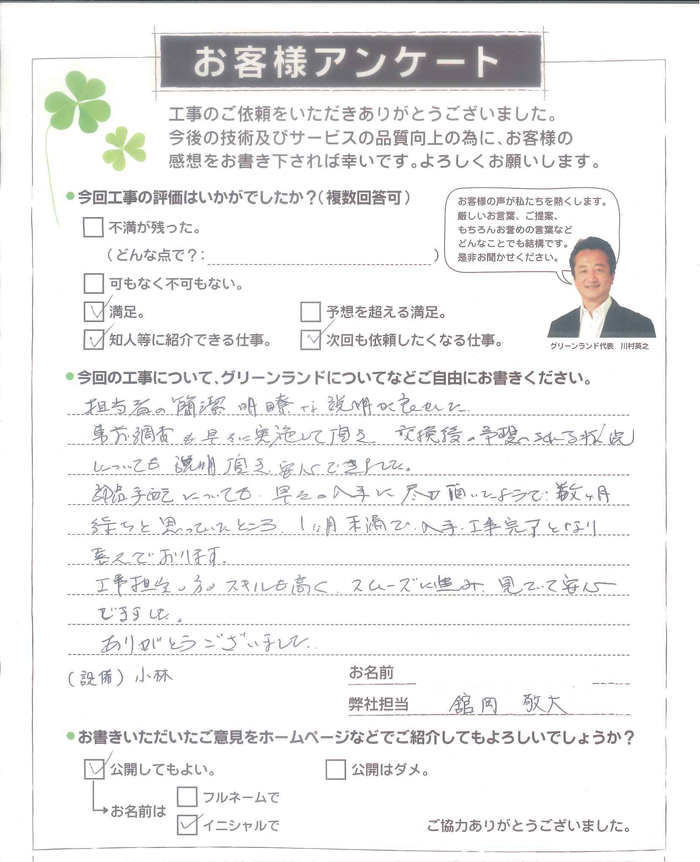 お客様アンケート
工事のご依頼をいただきありがとうございました。
今後の技術及びサービスの品質向上の為に、お客様の
感想をお書き下されば幸いです。よろしくお願いします。
今回工事の評価はいかがでしたか?(複数回答可)
不満が残った。
(どんな点で?: )
可もなく不可もない。
満足。
予想を超える満足。
知人等に紹介できる仕事。
次回も依頼したくなる仕事。
お客様の声が私たちを熱くします。
厳しいお言葉、ご提案、
もちろんお誉めの言葉など
どんなことでも結構です。
是非お聞かせください。
グリーンランド代表 川村英之
今回の工事について、グリーンランドについてなどご自由にお書きください。
担当者の簡潔明瞭な説明が良かった。
事前調査も早々に実施して頂き 交換後の予想される
についても説明頂き、安心できました。
部品手配についても、早々の入手に尽力頂いたようで、数ヶ月
待ちと思っていたところ、1ヶ月未満で、入手・工事完了となり
喜んでおります。
工事担当の方のスキルも高く、スムーズに進み、見ていて安心
できました。
ありがとうございました。
(設備)小林
お名前
弊社担当 舘岡 敬大
お書きいただいたご意見をホームページなどでご紹介してもよろしいでしょうか?
公開してもよい。
公開はダメ。
お名前は
フルネームで
イニシャルで
ご協力ありがとうございました。